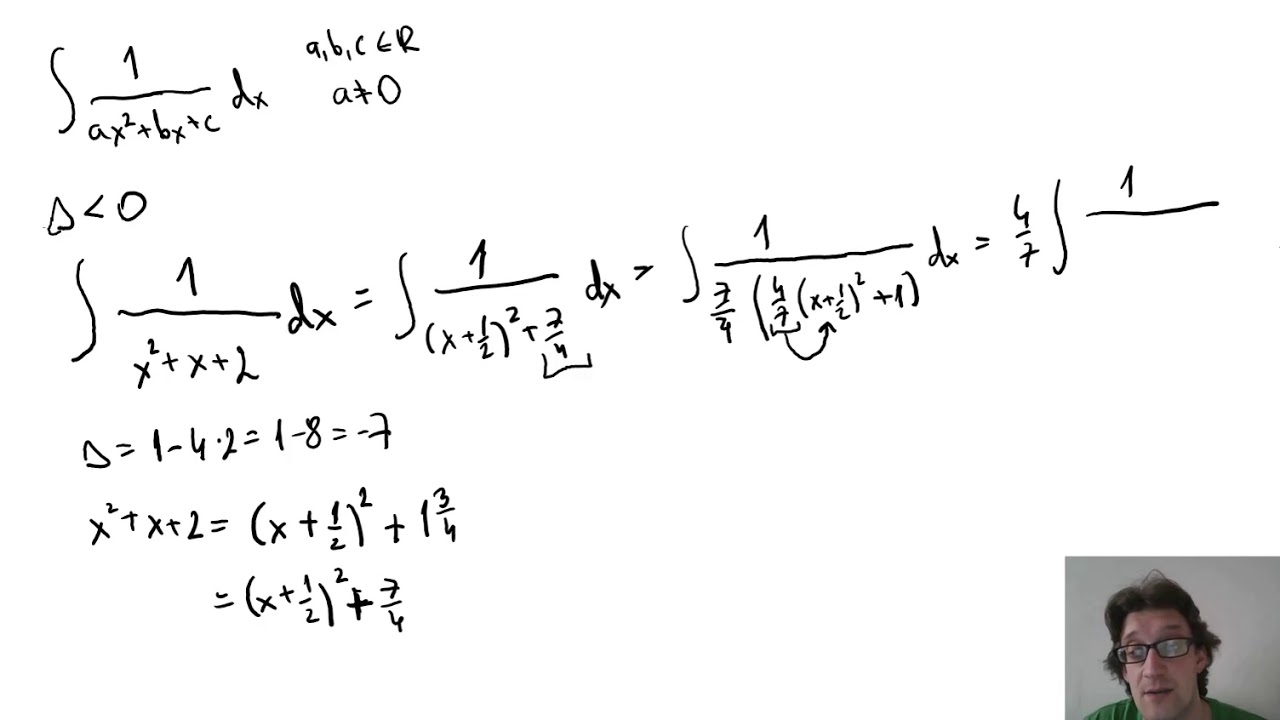 ∫ 1/(ax²+bx+c) dx a,b,c ∈ R
a≠0
Δ < 0
∫ 1/(x²+x+2) dx = ∫ 1/((x+1/2)²+7/4) dx = ∫ 1/(7/4 (4/7 (x+1/2)²+1)) dx = 4/7 ∫ 1/
Δ = 1-4·2 = 1-8 = -7
x²+x+2 = (x+1/2)² + 1 3/4
= (x+1/2)² + 7/4